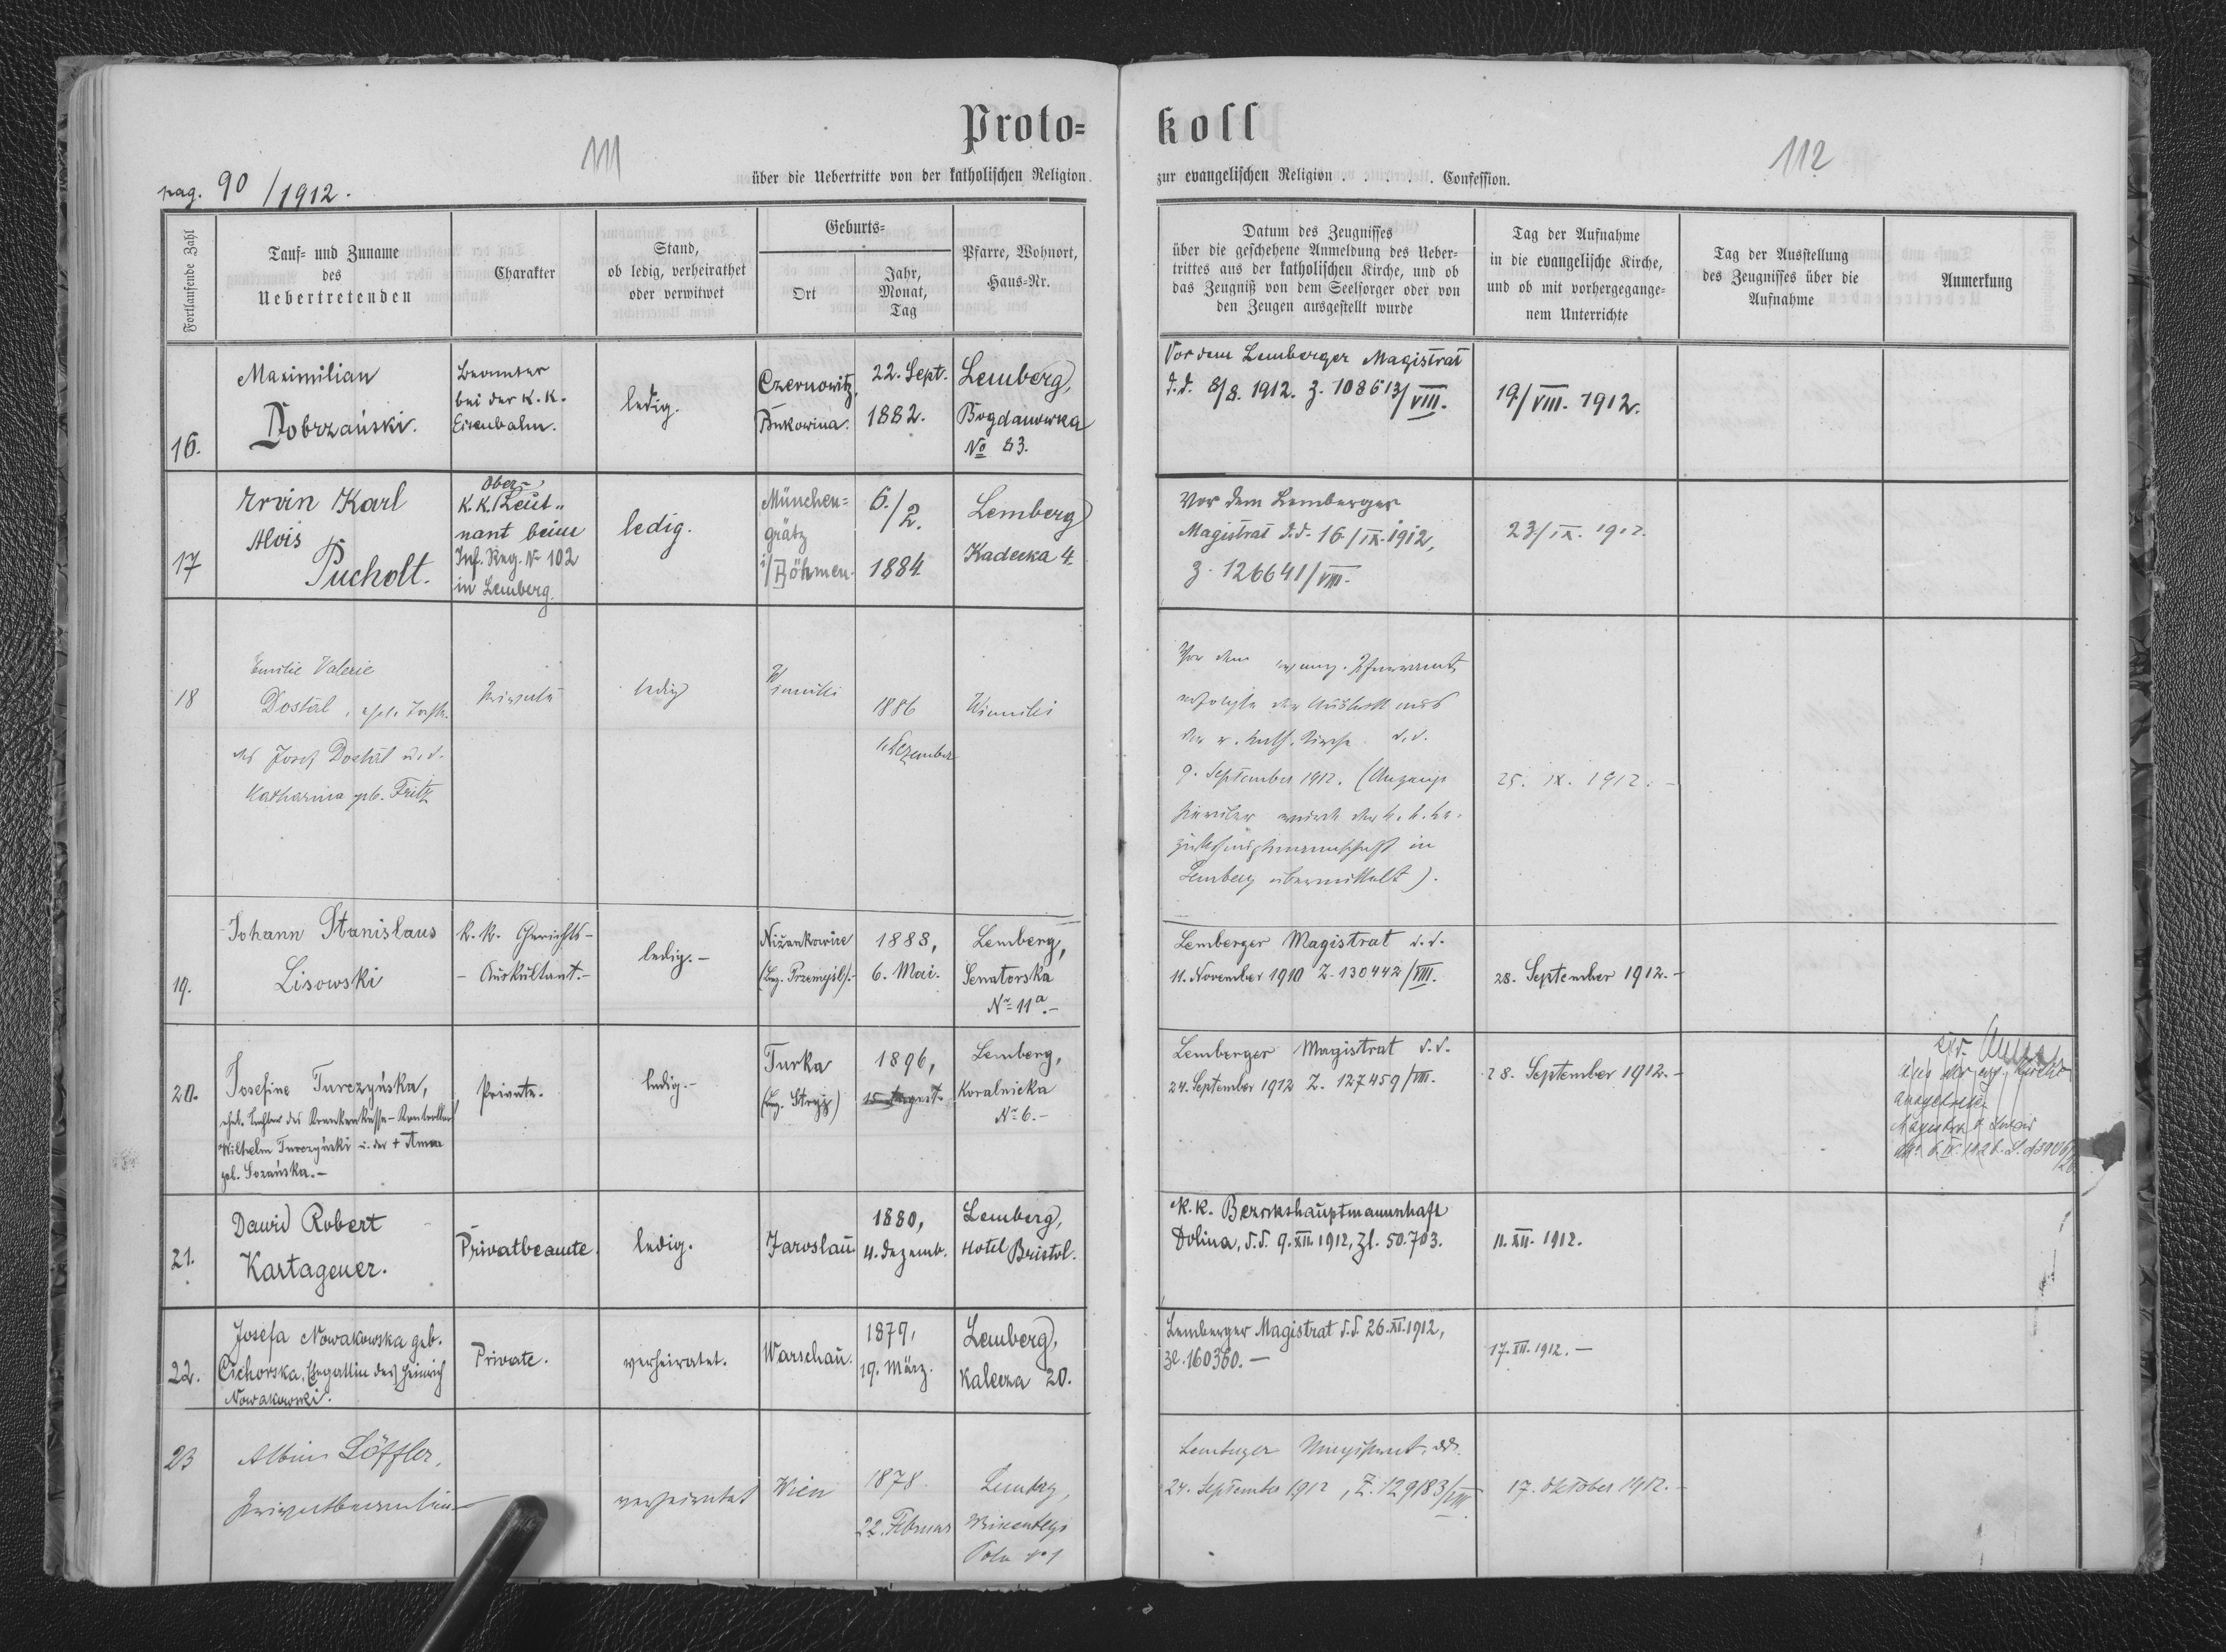 Proto=
koll
111
112
pag. 90/1912.
über die Uebertritte von der katholischen Religion.
zur evangelischen Religion . . . . . . Confession.
Fortlaufende Zahl
Tauf= und Zuname
des
Uebertretenden
Charakter
Stand,
ob ledig, verheirathet
oder verwitwet
Geburts=
Ort
Jahr,
Monat,
Tag
Pfarre, Wohnort,
Haus=Nr.
Datum des Zeugnisses
über die geschehene Anmeldung des Ueber=
trittes aus der katholischen Kirche, und ob
das Zeugniß von dem Seelsorger oder von
den Zeugen ausgestellt wurde
Tag der Aufnahme
in die evangelische Kirche,
und ob mit vorhergegange=
nem Unterrichte
Tag der Ausstellung
des Zeugnisses über die
Aufnahme
Anmerkung
16.
Maximilian
Dobrzański.
Beamter
bei der K.K.
Eisenbahn.
ledig.
Czernowitz,
Bukowina.
22. Sept.
1882.
Lemberg,
Bogdanowka
No 83.
Vor dem Lemberger Magistrat
d.d. 8/8. 1912. Z. 108613/VIII.
19/VIII. 1912.
17
Ervin Karl
Alois
Pucholt.
Ober-
K.K. Leut-
nant beim
Inf. Reg. No 102
in Lemberg.
ledig.
München=
grätz
i/Böhmen.
6./2.
1884
Lemberg
Kadecka 4.
Vor dem Lemberger
Magistrat d.d. 16./IX. 1912,
Z. 126641/VIII.
23/IX. 1912.
18
Emilie Valerie
Dostál, ehel. Tocht.
des Josef Dostál u. d.
Katharina geb. Fritz
Private
ledig
Winniki
1886
Dezember
Winniki
Vor dem evang. Pfarramte
erfolgte der Austritt aus
der r. kath. Kirche d.d.
9. September 1912. (Anzeige
hierüber wurde der k. k. Be-
zirkshauptmannschaft in
Lemberg übermittelt).
25. IX. 1912.-
19.
Johann Stanislaus
Lisowski
K.K. Gerichts-
- Auskultant.-
ledig.-
Niżankowice
(Bez. Przemyśl).-
1888,
6. Mai.
Lemberg,
Senatorska
Nr 11a.-
Lemberger Magistrat d.d.
11. November 1910 Z. 130442/VIII.
28. September 1912.-
20.
Josefine Turczyńska,
ehel. Tochter des Krankenkasse-Kontrollors
Wilhelm Turczyński u. der + Anna
geb. Sozańska.-
Private.
ledig.-
Turka
(Bez. Stryj)
1896,
15 August
Lemberg,
Koralnicka
Nr 6.-
Lemberger Magistrat d.d.
24. September 1912 Z. 127459/VIII.
28. September 1912.-
aus der ev. Kirche
ausgetreten
21.
Dawid Robert
Kartagener.
Privatbeamte.
ledig.
Jaroslau
1880,
4. Dezemb.
Lemberg,
Hotel Bristol.
K.K. Bezirkshauptmannschaft
Dolina, d.d. 9. XII. 1912, Zl. 50.703.
11. XII. 1912.
22.
Josefa Nowakowska geb.
Cichorska, Ehegattin des Heinrich
Nowakowski.
Private.
verheiratet.
Warschau.
1879,
19. März.
Lemberg,
Kalecza 20.
Lemberger Magistrat d.d. 26. XI. 1912,
Zl. 160360.-
17. XII. 1912.-
23
Albin Löffler,
Privatbeamter
verheiratet
Wien
1878.
22. Februar
Lemberg,
Pola No 1
Lemberger Magistrat dd.
24. September 1912, Z. 129183/VIII
17. Oktober 1912.-